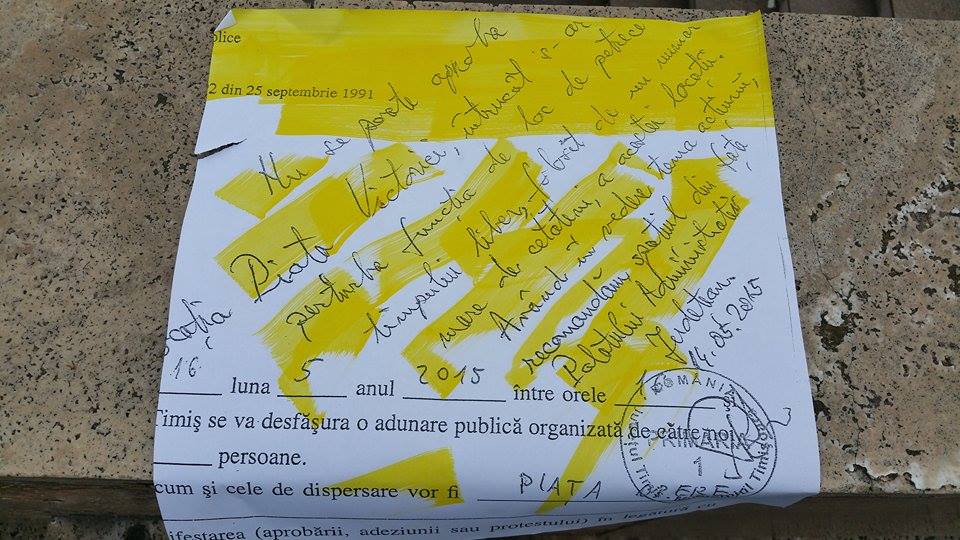 olice
2 din 25 septembrie 1991
Nu se poate aproba
Piața Victoriei, întrucât s-ar
perturba funcția de loc de petrece
timpului liber, fiind de un număr
mare de cetățeni, a acestei locații.
Având în vedere tema acțiunii,
recomandăm spațiul din fața
Palatului Administrativ
Județean.
14.05.2015
16. luna 5 anul 2015 între orele 16
Timiș se va desfășura o adunare publică organizată de către noi
persoane.
cum și cele de dispersare vor fi PIATA
ifestarea (aprobării, adeziunii sau protestului) în legătură cu
ROMÂNIA
PRIMĂRIA